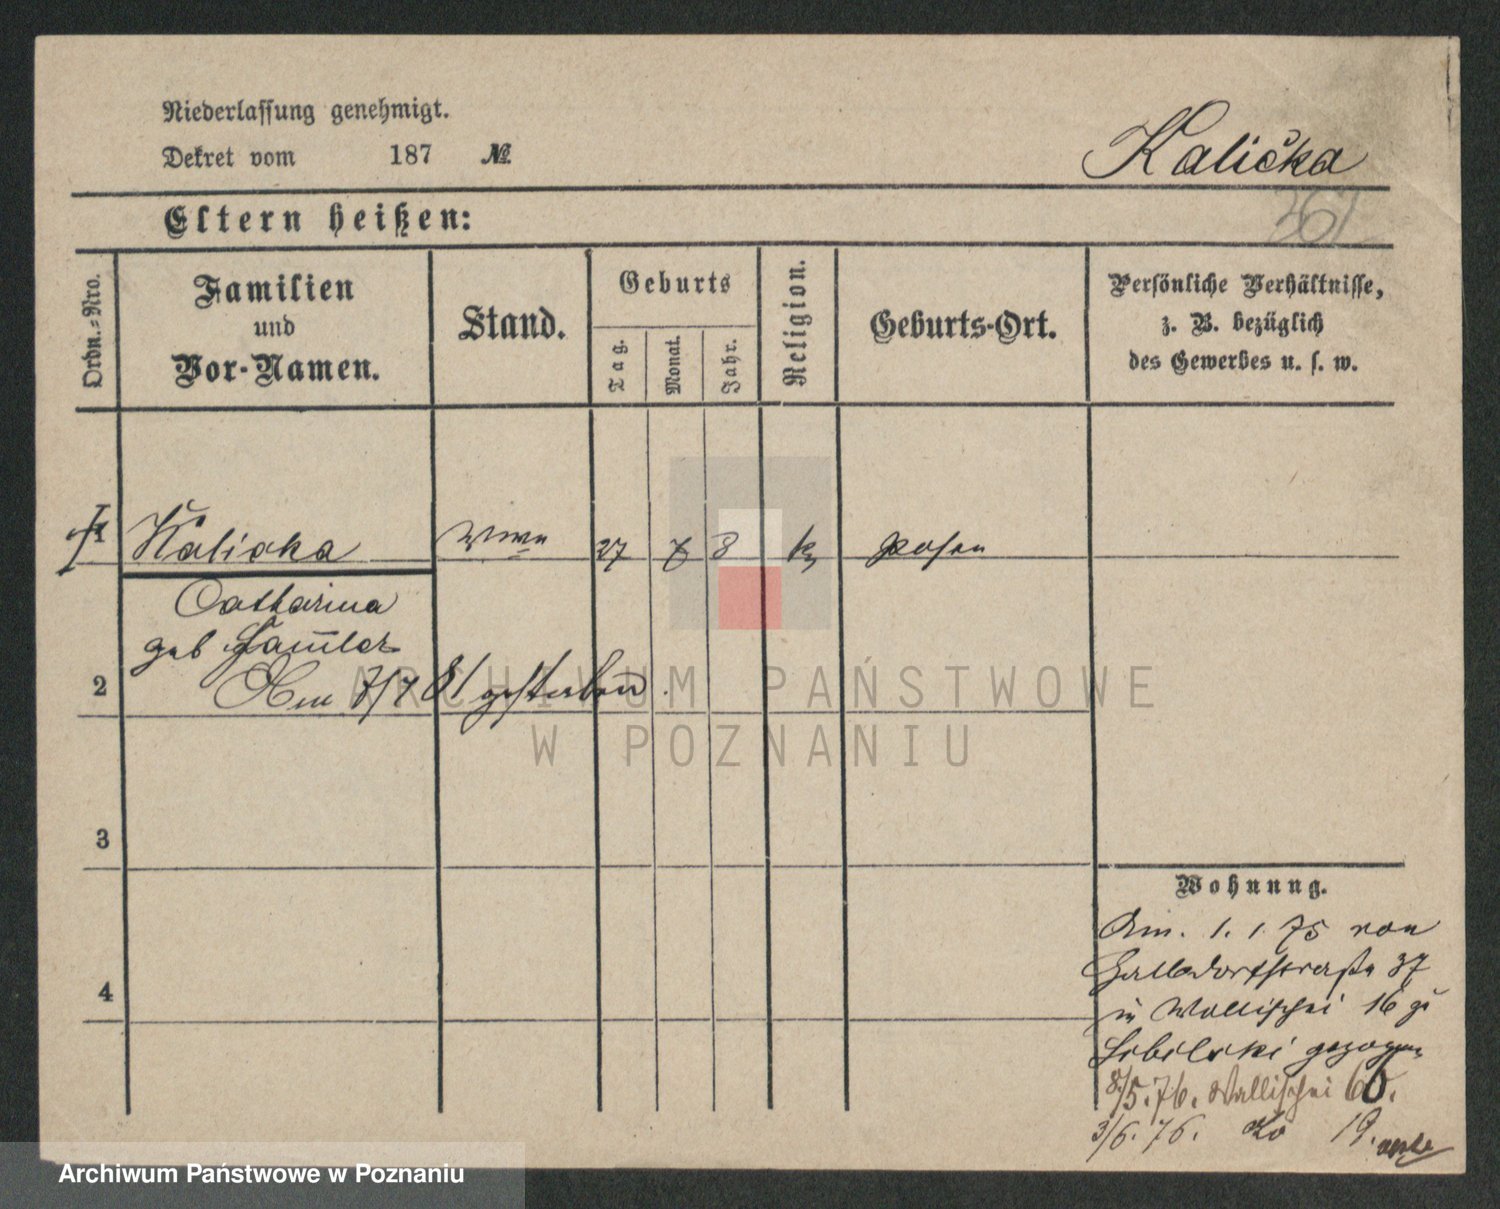 Niederlassung genehmigt.
Dekret vom 187 №
Kalička
Eltern heißen:
Ordn.=Nro.
Familien
und
Vor-Namen.
Stand.
Geburts
Tag.
Monat.
Jahr.
Religion.
Geburts-Ort.
Persönliche Verhältnisse,
z. B. bezüglich
des Gewerbes u. s. w.
1 Kalicka 27 7 3 k Posen
Catharina
geb
2 Am 7/7 81 gestorben.
3
4
Wohnung.
Am. 1. 1. 75 von
37
in Wallischei 16 zu
gezogen
8/5.76. Wallischei 60.
3/6. 76. do 19.
ARCHIWUM PAŃSTWOWE
W POZNANIU
Archiwum Państwowe w Poznaniu